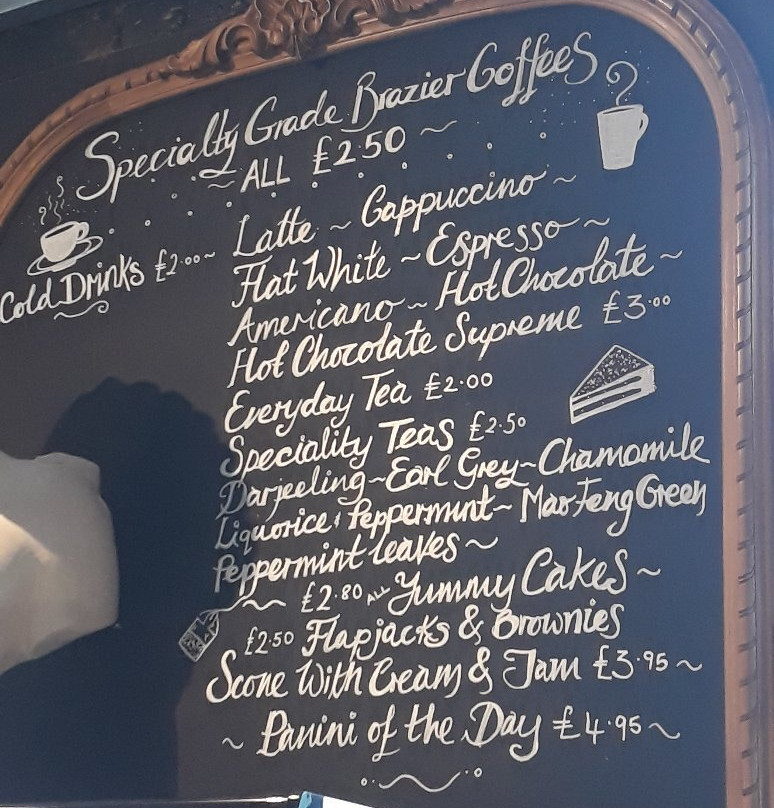 Specialty Grade Brazier Coffees
~ ALL £2.50 ~
Cold Drinks £2.00~
Latte ~ Cappuccino ~
Flat White ~ Espresso ~
Americano ~ Hot Chocolate ~
Hot Chocolate Supreme £3.00
Everyday Tea £2.00
Speciality Teas £2.50
Darjeeling~Earl Grey~Chamomile
Liquorice & Peppermint~ Mao Feng Green
Peppermint leaves ~
~ £2.80 ALL Yummy Cakes ~
£2.50 Flapjacks & Brownies
Scone With Cream & Jam £3.95 ~
~ Panini of the Day £4.95 ~